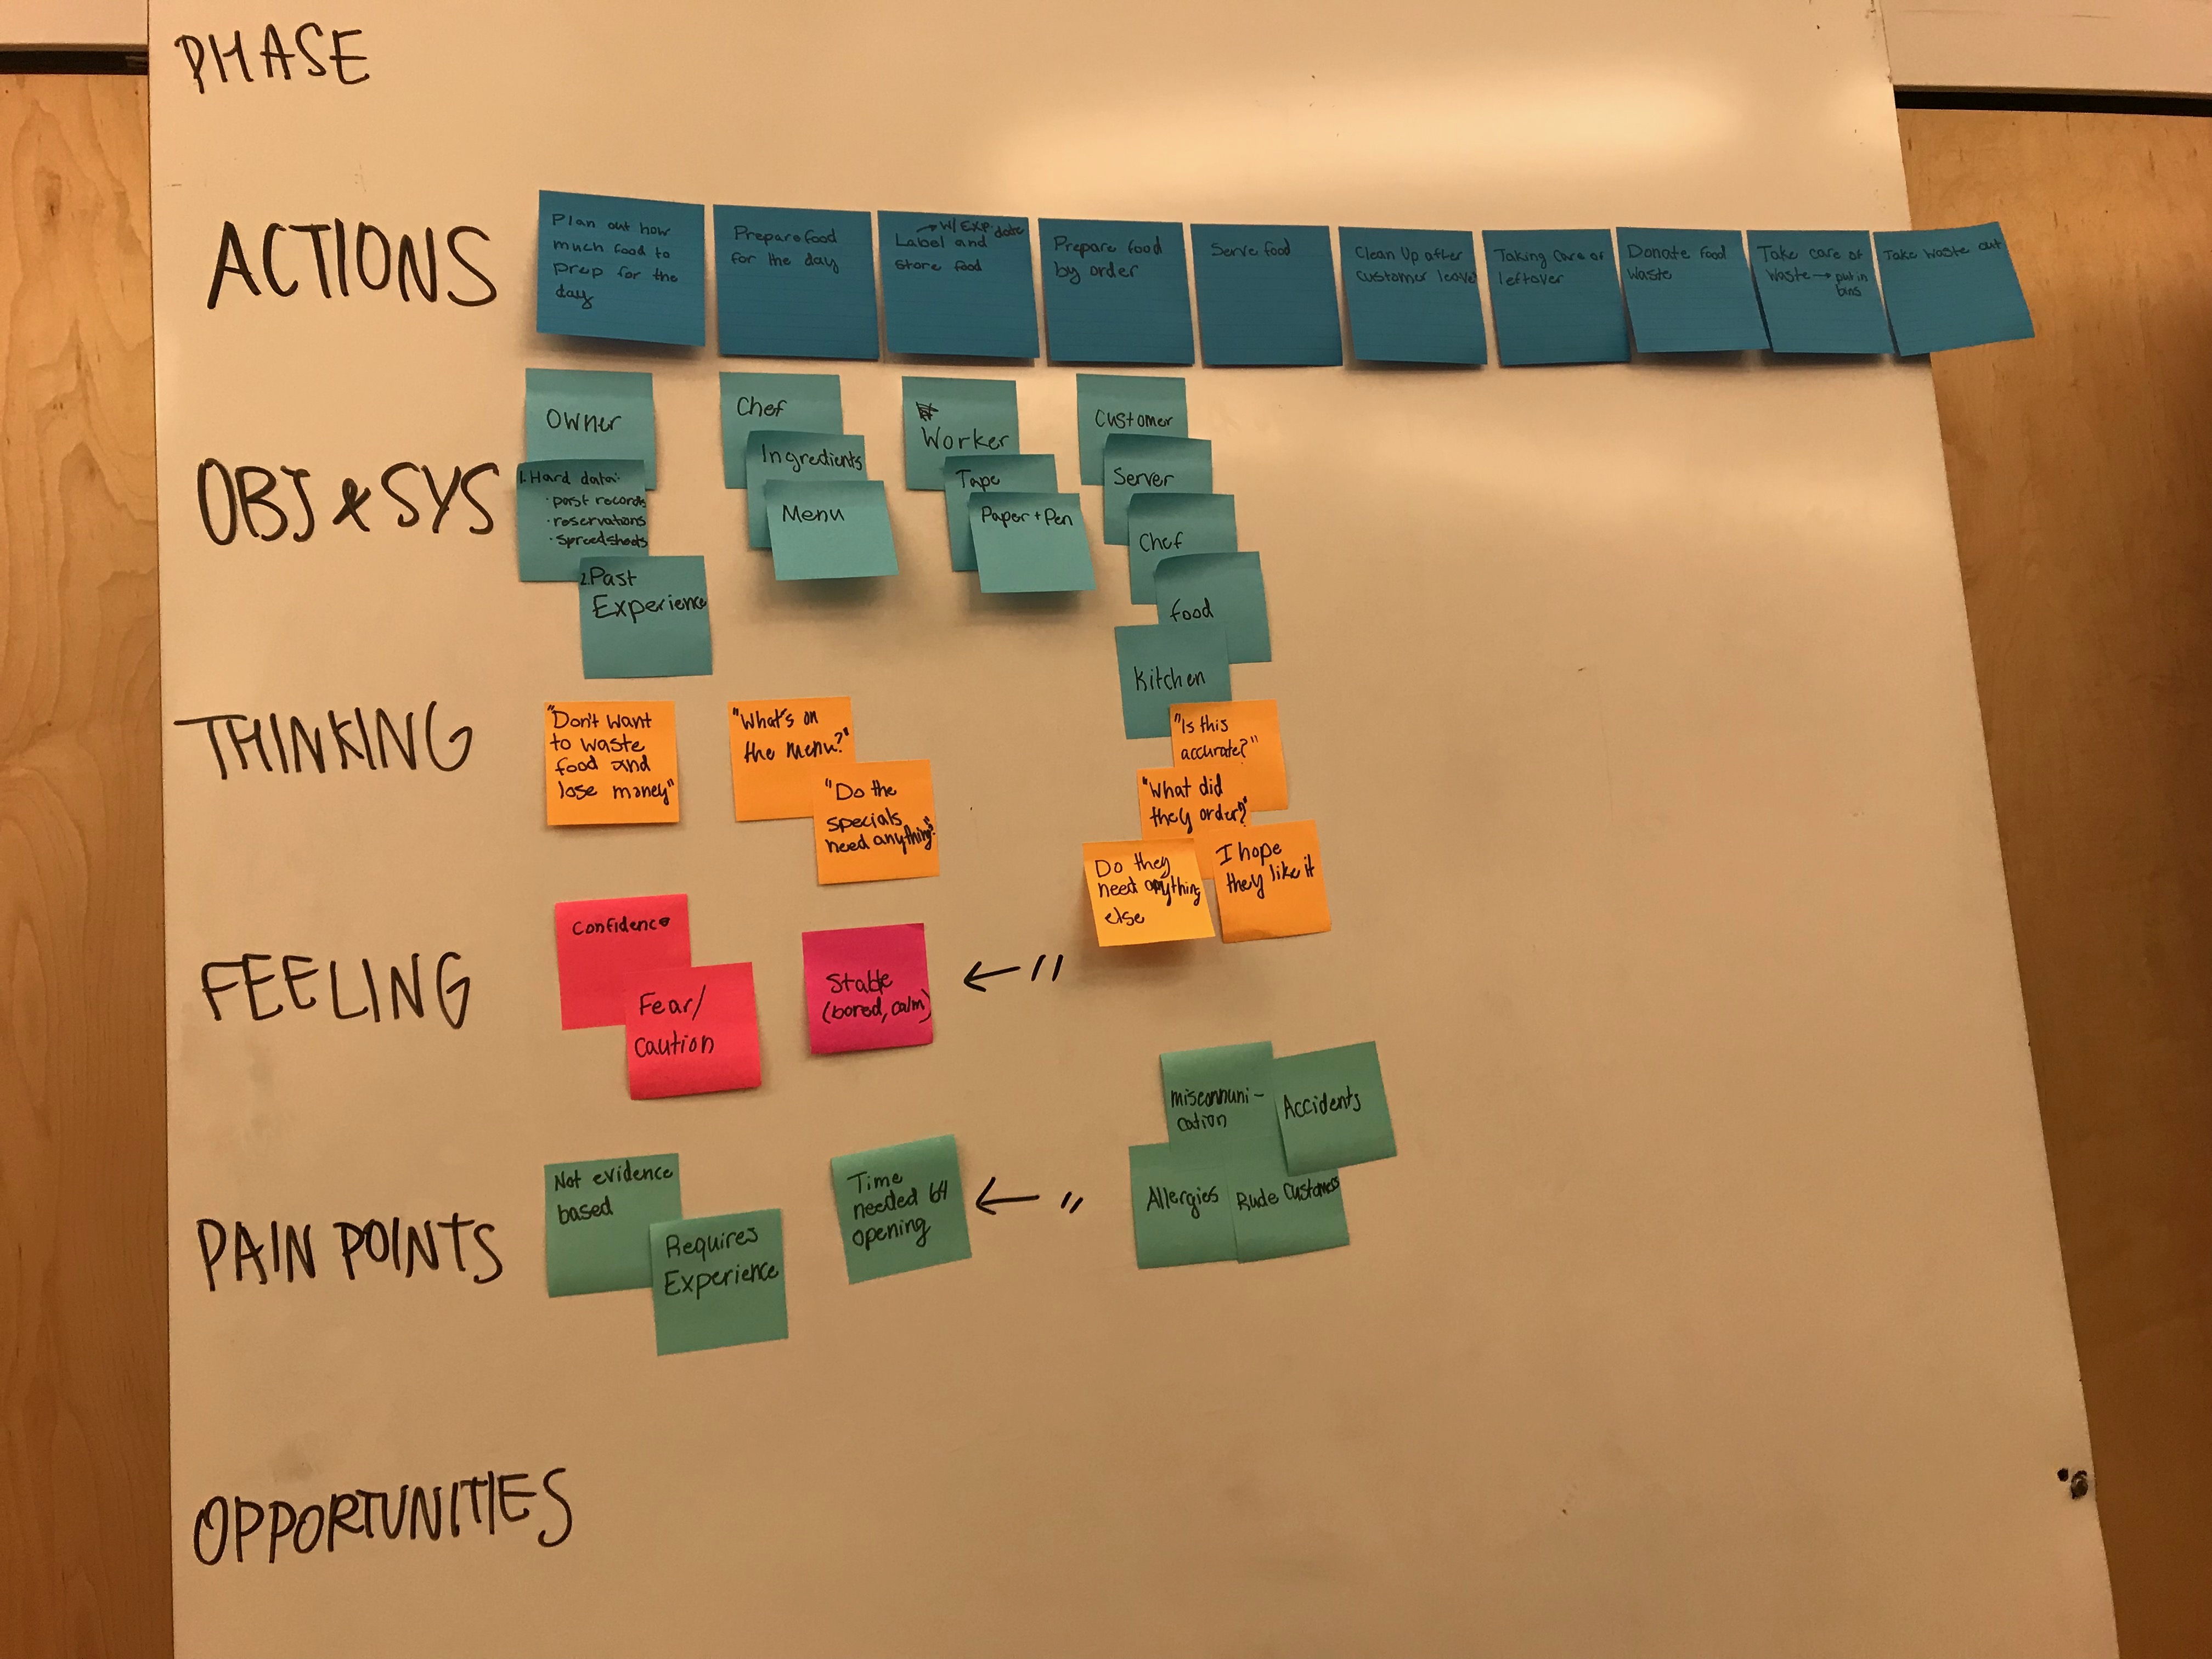 PHASE
ACTIONS
Plan out how
much food to
prep for the
day
Prepare food
for the day
→ w/ Exp. date
Label and
store food
Prepare food
by order
Serve food
Clean Up after
customer leave
Taking care of
leftover
Donate food
waste
Take care of
waste → put in
bins
Take waste out
OBJ & SYS
Owner
1. Hard data:
· past records
· reservations
· spreedsheets
2. Past
Experience
Chef
Ingredients
Menu
Worker
Tape
Paper + Pen
Customer
Server
Chef
food
Kitchen
THINKING
"Don't want
to waste
food and
lose money"
"What's on
the menu?"
"Do the
specials
need anything?"
"Is this
accurate?"
"What did
they order?"
Do they
need anything
else
I hope
they like it
FEELING
Confidence
Fear/
caution
Stable
(bored, calm)
← "
PAIN POINTS
Not evidence
based
Requires
Experience
Time
needed b4
opening
← "
miscommuni-
cation
Accidents
Allergies
Rude Customers
OPPORTUNITIES